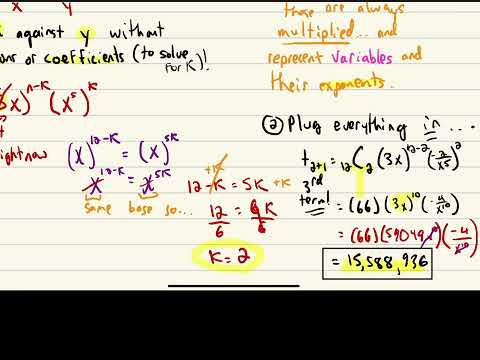 x y
against y without
ons or coefficients (to solve
for K)!
those are always
multiplied... and
represent variables and
their exponents.
x)^{n-K} (x^5)^K
right now
(x)^{12-K} = (x)^{5K}
x^{12-K} = x^{5K}
same base so...
+K
12-K = 5K +K
12/6 = 6K/6
K = 2
② Plug everything in ...
t_{2+1} = _{12}C_2 (3x)^{12-2} (-2/x^5)^2
3rd
term!
= (66)(3x)^{10} (-4/x^{10})
= (66)(59049x^{10})(-4/x^{10})
= 15,588,936